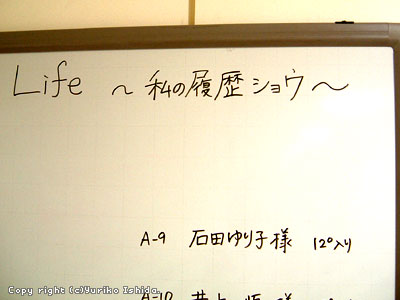 Life ～ 私の履歴ショウ～
A-9 石田ゆり子様 12°入り
A-10
Copy right (c)Yuriko Ishida.